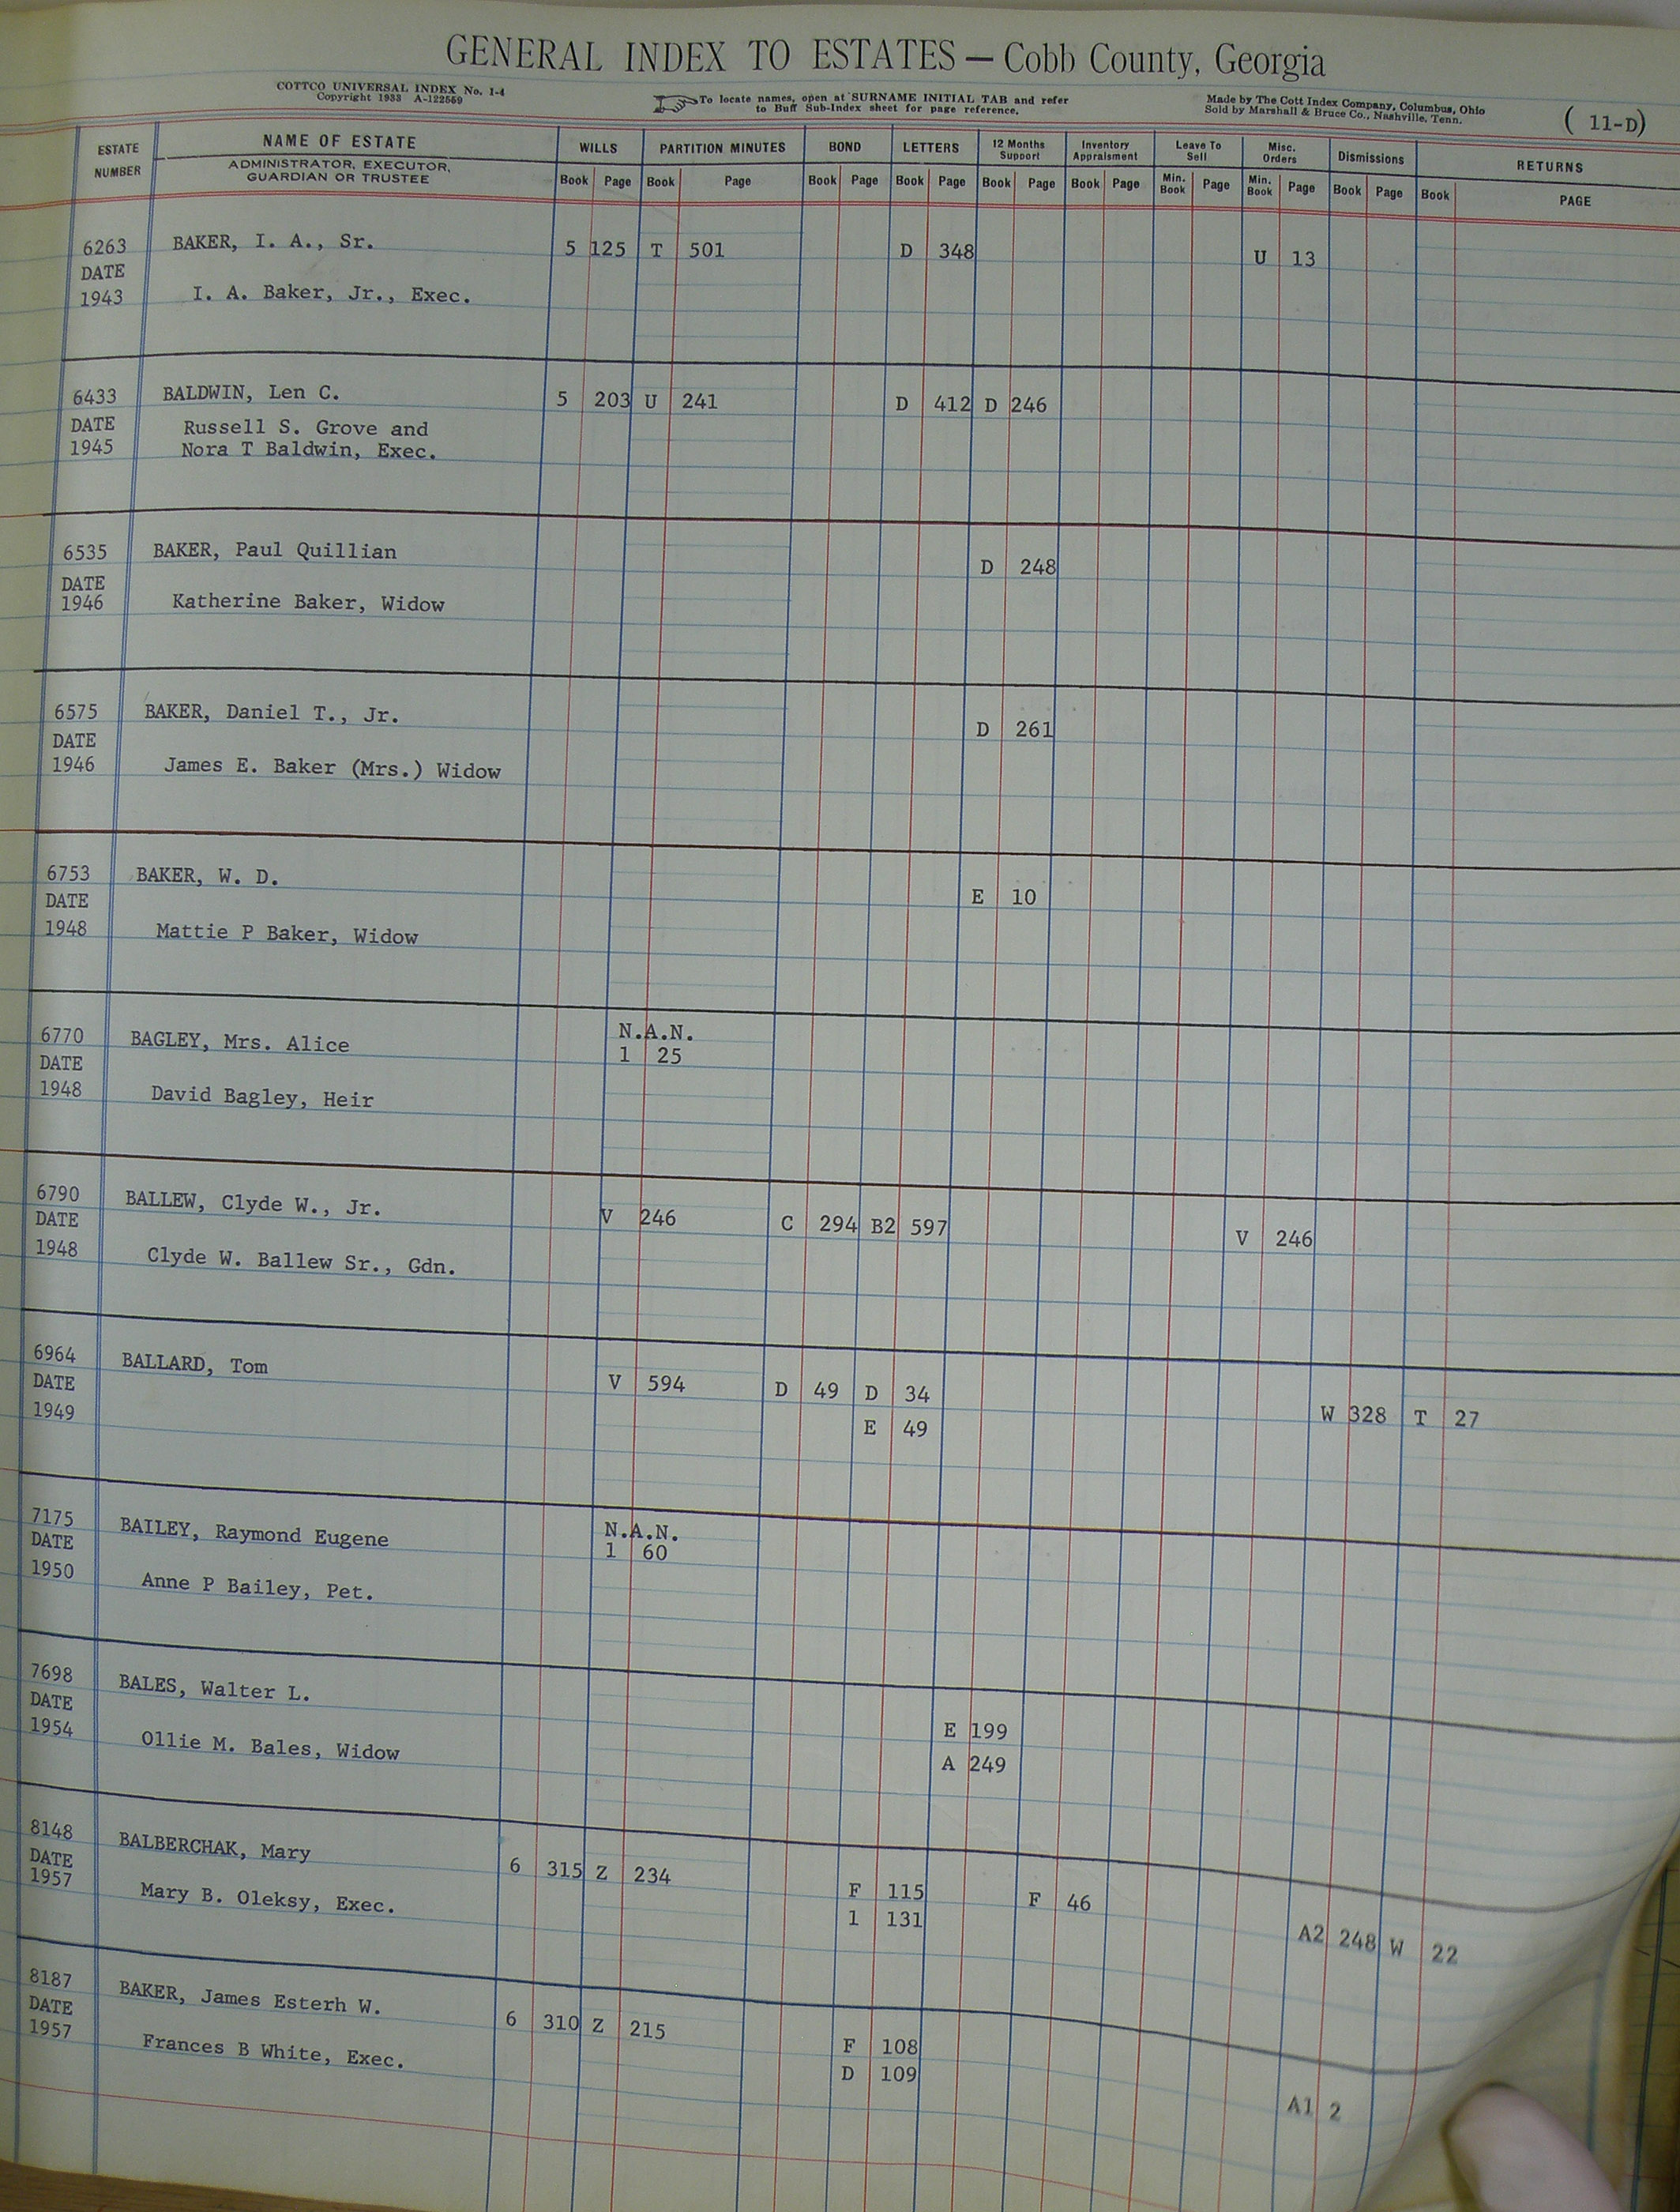 GENERAL INDEX TO ESTATES — Cobb County, Georgia
COTTCO UNIVERSAL INDEX No. 1-4
Copyright 1933 A-122559
To locate names, open at SURNAME INITIAL TAB and refer
to Buff Sub-Index sheet for page reference.
Made by The Cott Index Company, Columbus, Ohio
Sold by Marshall & Bruce Co., Nashville, Tenn.
( 11-D)
ESTATE NUMBER NAME OF ESTATE WILLS PARTITION MINUTES BOND LETTERS 12 Months Support Inventory Appraisment Leave To Sell Misc. Orders Dismissions RETURNS
ADMINISTRATOR, EXECUTOR,
GUARDIAN OR TRUSTEE
Book Page Book Page Book Page Book Page Book Page Book Page Min. Book Page Min. Book Page Book Page Book PAGE
6263 BAKER, I. A., Sr. 5 125 T 501 D 348 U 13
DATE
1943 I. A. Baker, Jr., Exec.
6433 BALDWIN, Len C. 5 203 U 241 D 412 D 246
DATE Russell S. Grove and
1945 Nora T Baldwin, Exec.
6535 BAKER, Paul Quillian D 248
DATE
1946 Katherine Baker, Widow
6575 BAKER, Daniel T., Jr. D 261
DATE
1946 James E. Baker (Mrs.) Widow
6753 BAKER, W. D. E 10
DATE
1948 Mattie P Baker, Widow
6770 BAGLEY, Mrs. Alice N.A.N.
DATE 1 25
1948 David Bagley, Heir
6790 BALLEW, Clyde W., Jr. V 246 C 294 B2 597 V 246
DATE
1948 Clyde W. Ballew Sr., Gdn.
6964 BALLARD, Tom V 594 D 49 D 34 W 328 T 27
DATE E 49
1949
7175 BAILEY, Raymond Eugene N.A.N.
DATE 1 60
1950 Anne P Bailey, Pet.
7698 BALES, Walter L. E 199
DATE A 249
1954 Ollie M. Bales, Widow
8148 BALBERCHAK, Mary 6 315 Z 234 F 115 F 46 A2 248 W 22
DATE 1 131
1957 Mary B. Oleksy, Exec.
8187 BAKER, James Esterh W. 6 310 Z 215 F 108 A1 2
DATE D 109
1957 Frances B White, Exec.